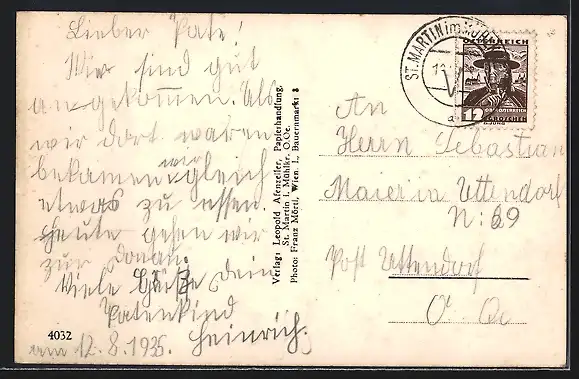 Lieber Pate!
Wir sind gut
angekommen. Als
wir dort waren
bekamen wir gleich
etwas zu essen.
Heute gehen wir
zur Donau.
Viele Grüße Dein
Patenkind
Heinrich.
4032
am 12.8.1935.
Verlag: Leopold Afenzeller, Papierhandlung,
St. Martin i. Mühlkr. O.Oe.
Photo: Franz Mörtl, Wien I., Bauernmarkt 3
ST. MARTIN im MÜHL
ÖSTERREICH
12
GROSCHEN
An
Herrn Sebastian
Maier in Uttendorf
N: 89
Post Uttendorf
O. Ö.